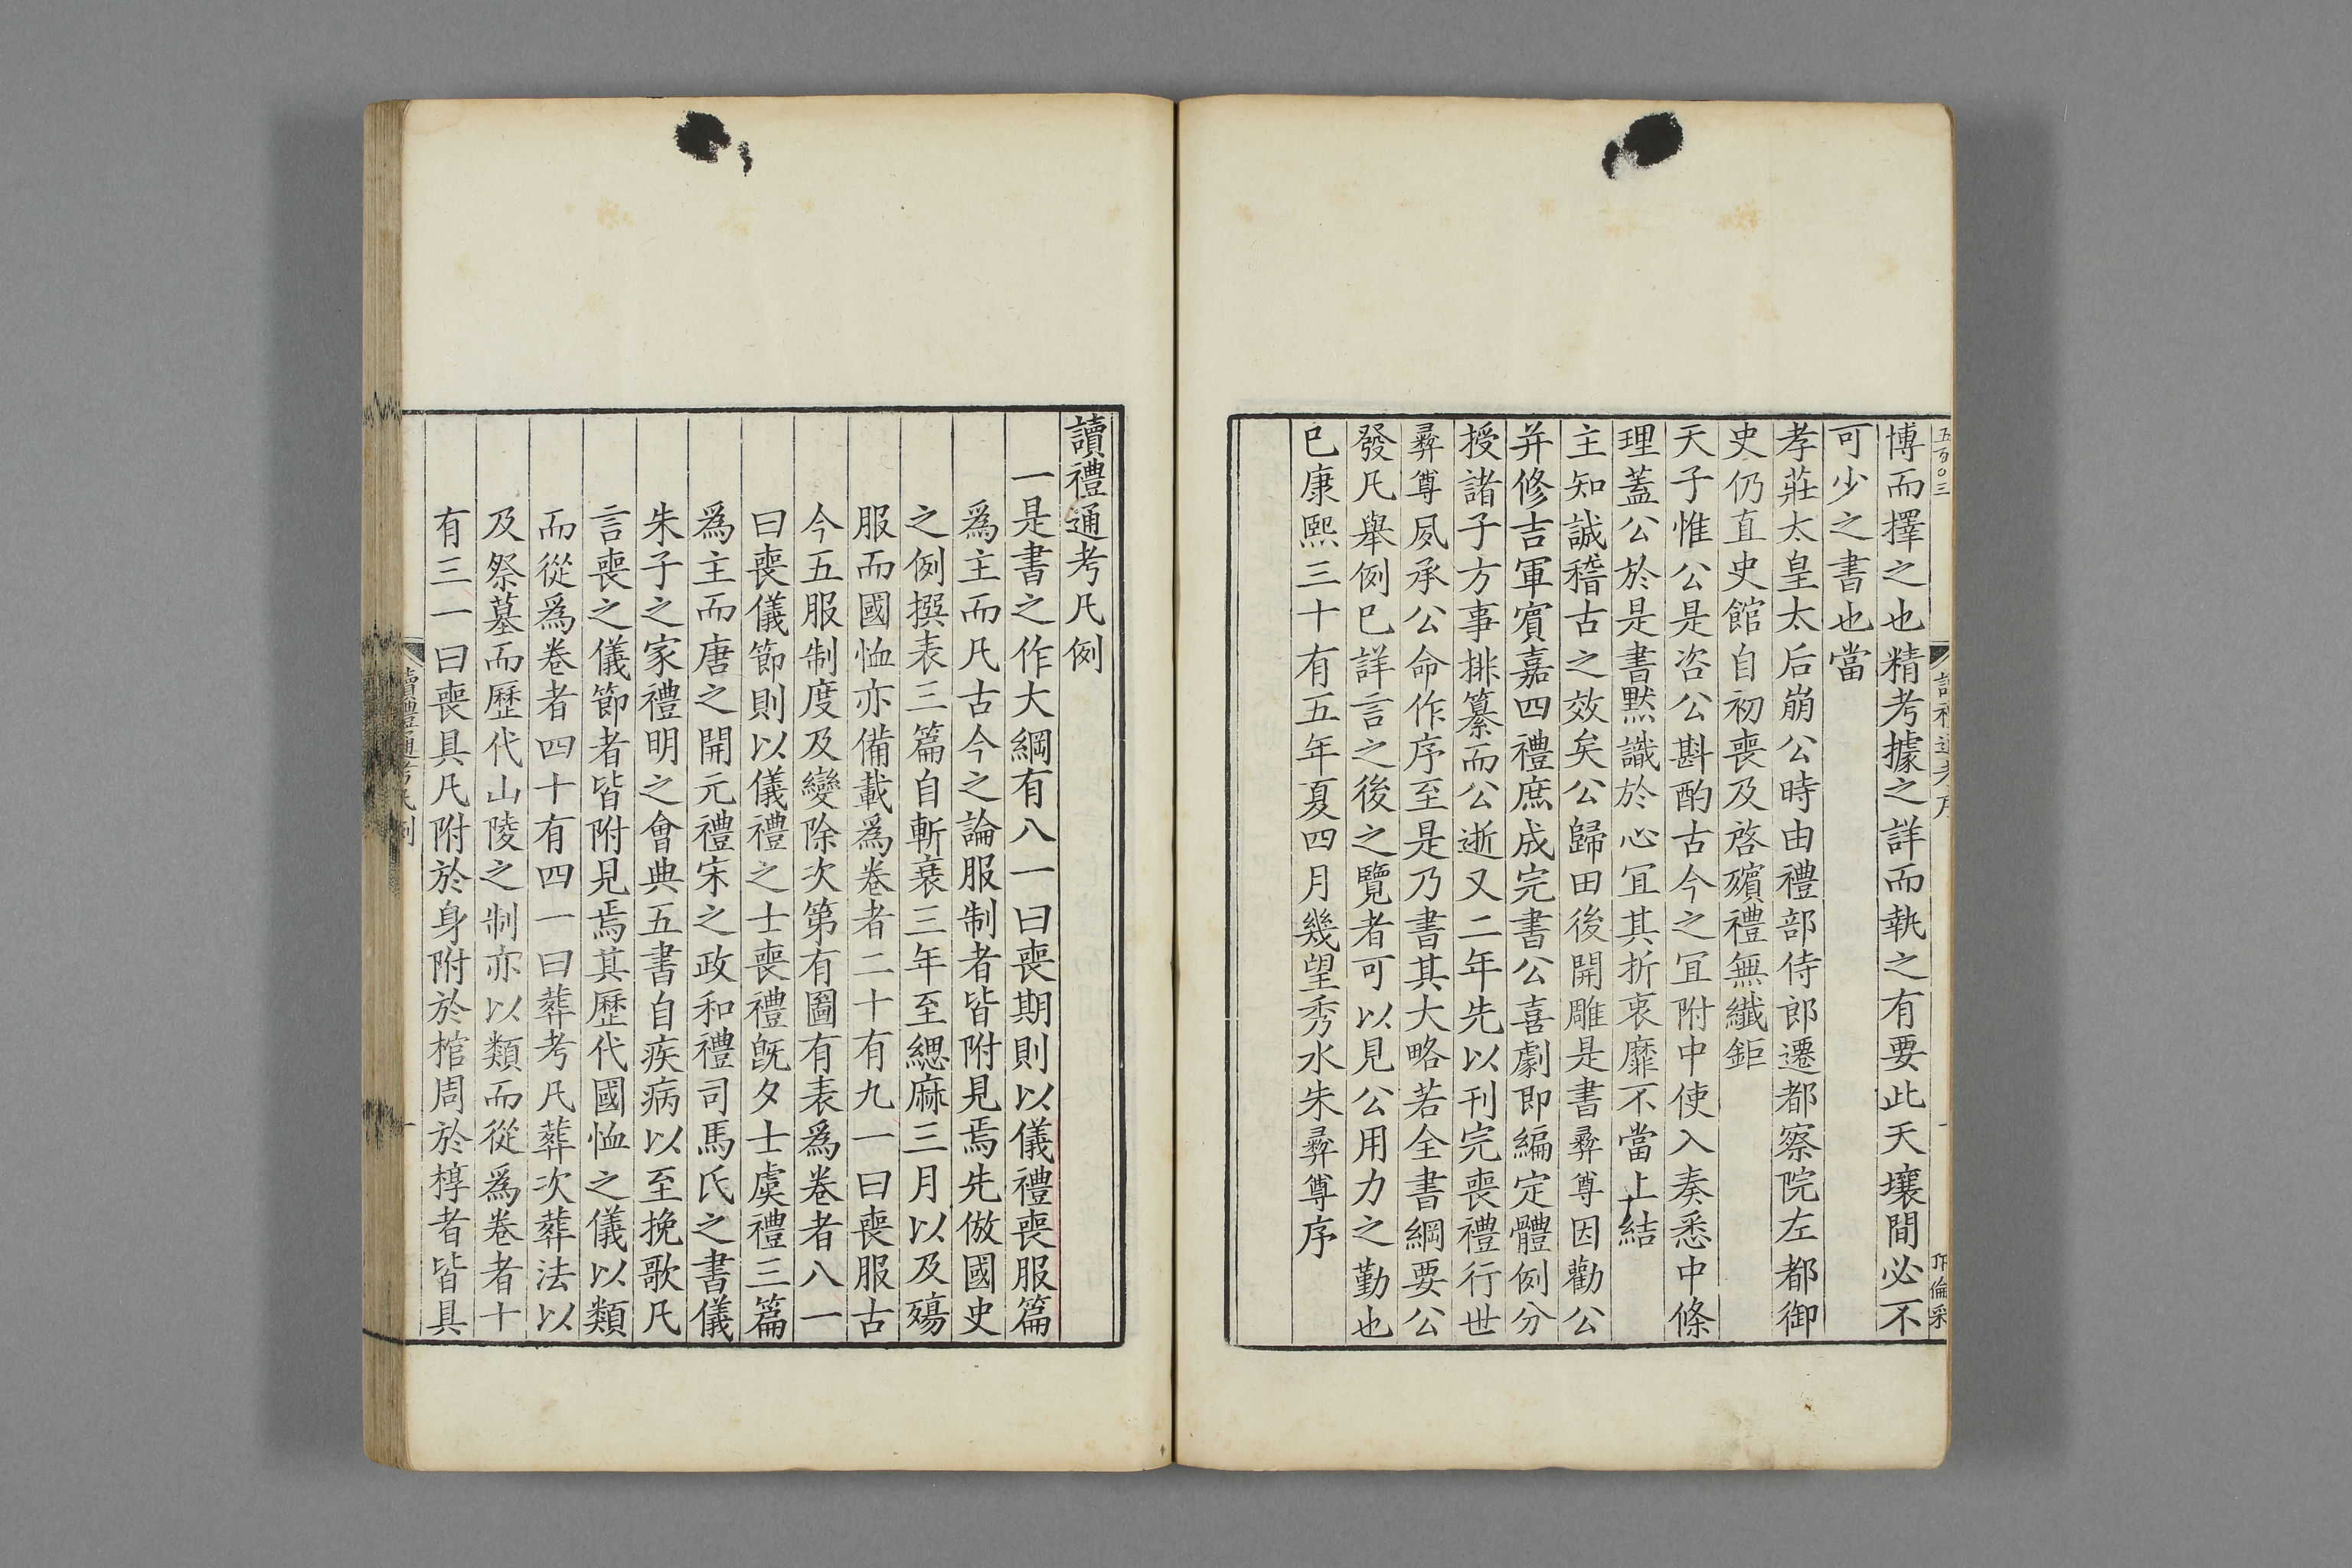 五百〇三
讀禮通考序
一
博而擇之也精考據之詳而執之有要此天壤間必不
可少之書也當
孝莊太皇太后崩公時由禮部侍郎遷都察院左都御
史仍直史館自初喪及啓殯禮無纖鉅
天子惟公是咨公斟酌古今之宜附中使入奏悉中條
理蓋公於是書默識於心宜其折衷靡不當上結
主知誠稽古之效矣公歸田後開雕是書彝尊因勸公
并修吉軍賓嘉四禮庶成完書公喜劇即編定體例分
授諸子方事排纂而公逝又二年先以刊完喪禮行世
彝尊夙承公命作序至是乃書其大略若全書綱要公
發凡舉例已詳言之後之覽者可以見公用力之勤也
已康熙三十有五年夏四月幾望秀水朱彝尊序
讀禮通考凡例
一是書之作大綱有八一曰喪期則以儀禮喪服篇
爲主而凡古今之論服制者皆附見焉先倣國史
之例撰表三篇自斬衰三年至緦麻三月以及殤
服而國恤亦備載爲卷者二十有九一曰喪服古
今五服制度及變除次第有圖有表爲卷者八一
曰喪儀節則以儀禮之士喪禮旣夕士虞禮三篇
爲主而唐之開元禮宋之政和禮司馬氏之書儀
朱子之家禮明之會典五書自疾病以至挽歌凡
言喪之儀節者皆附見焉其歷代國恤之儀以類
而從爲卷者四十有四一曰葬考凡葬次葬法以
及祭墓而歷代山陵之制亦以類而從爲卷者十
有三一曰喪具凡附於身附於棺周於椁者皆具
讀禮通考凡例
一